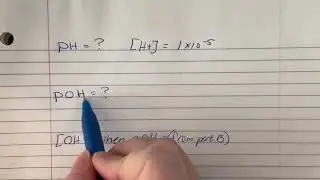 pH = ? [H+] = 1 x 10⁻⁵
pOH = ?
[OH when pOH = (from part B)